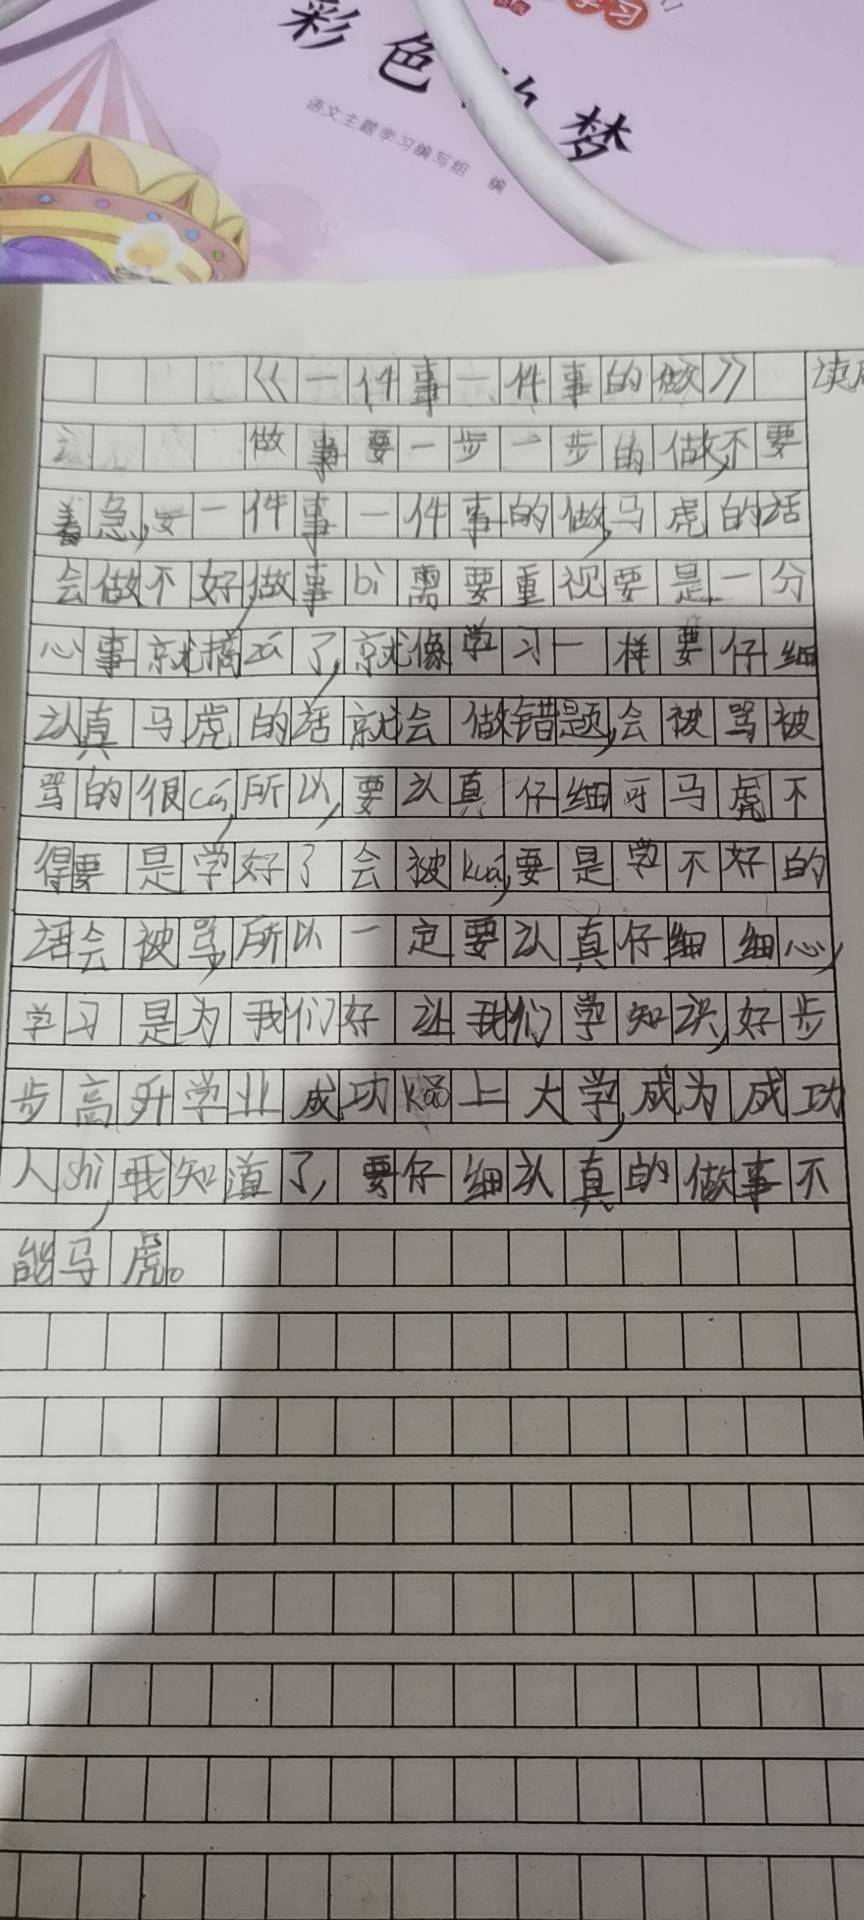 彩色的梦
语文主题学习编写组 编
《一件事一件事的做》读
做事要一步一步的做,不要
着急,要一件事一件事的做,马虎的话
会做不好,做事bì需要重视要是一分
心事就搞zá了,就像学习一样要仔细
认真马虎的话就会做错题,会被骂被
骂的很cǎn,所以,要认真仔细可马虎不
得要是学好了会被kuā,要是学不好的
话会被骂,所以一定要认真仔细细心,
学习是为我们好让我们学知识,好步
步高升学业成功kǎo上大学,成为成功
人shì,我知道了,要仔细认真的做事不
能马虎。